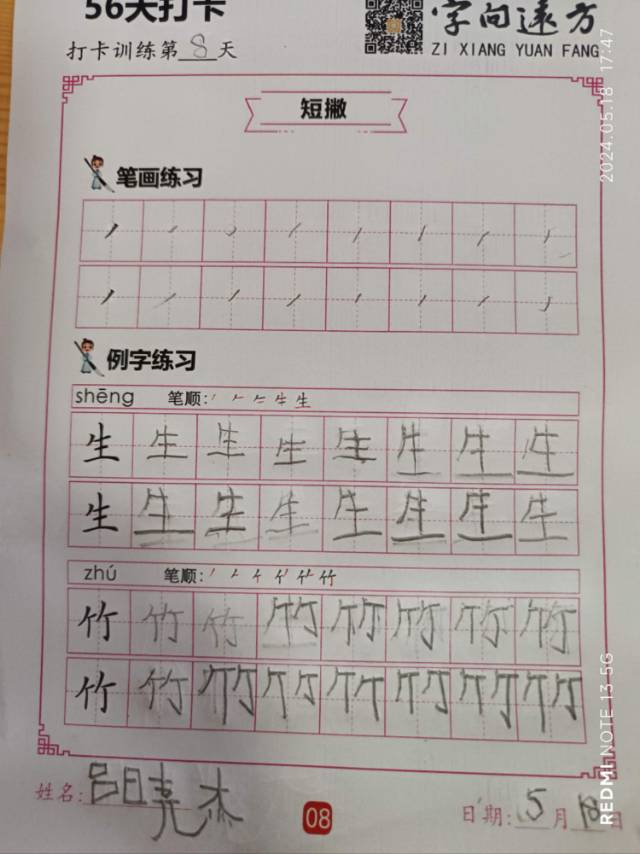 56天打卡
打卡训练第8天
字向远方
ZI XIANG YUAN FANG
短撇
笔画练习
例字练习
shēng 笔顺:
生 生 生 生 生 生 生 生
生 生 生 生 生 生 生 生
zhú 笔顺:
竹 竹 竹 竹 竹 竹 竹 竹
竹 竹 竹 竹 竹 竹 竹 竹
姓名: 吕尧杰
08
日期: 5月18日
2024.05.18 17:47
REDMI NOTE 13 5G